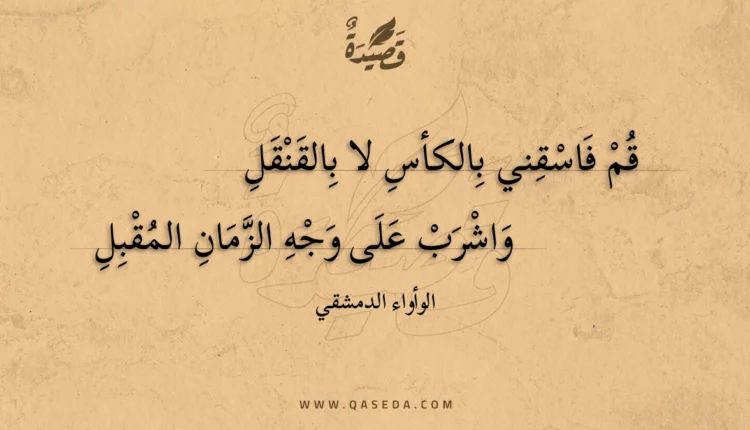 قَصِيْدَةٌ
قُمْ فَاسْقِني بِالكأسِ لا بِالقَنْقَلِ
وَاشْرَبْ عَلَى وَجْهِ الزَّمَانِ المُقْبِلِ
الوأواء الدمشقي
WWW.QASEDA.COM